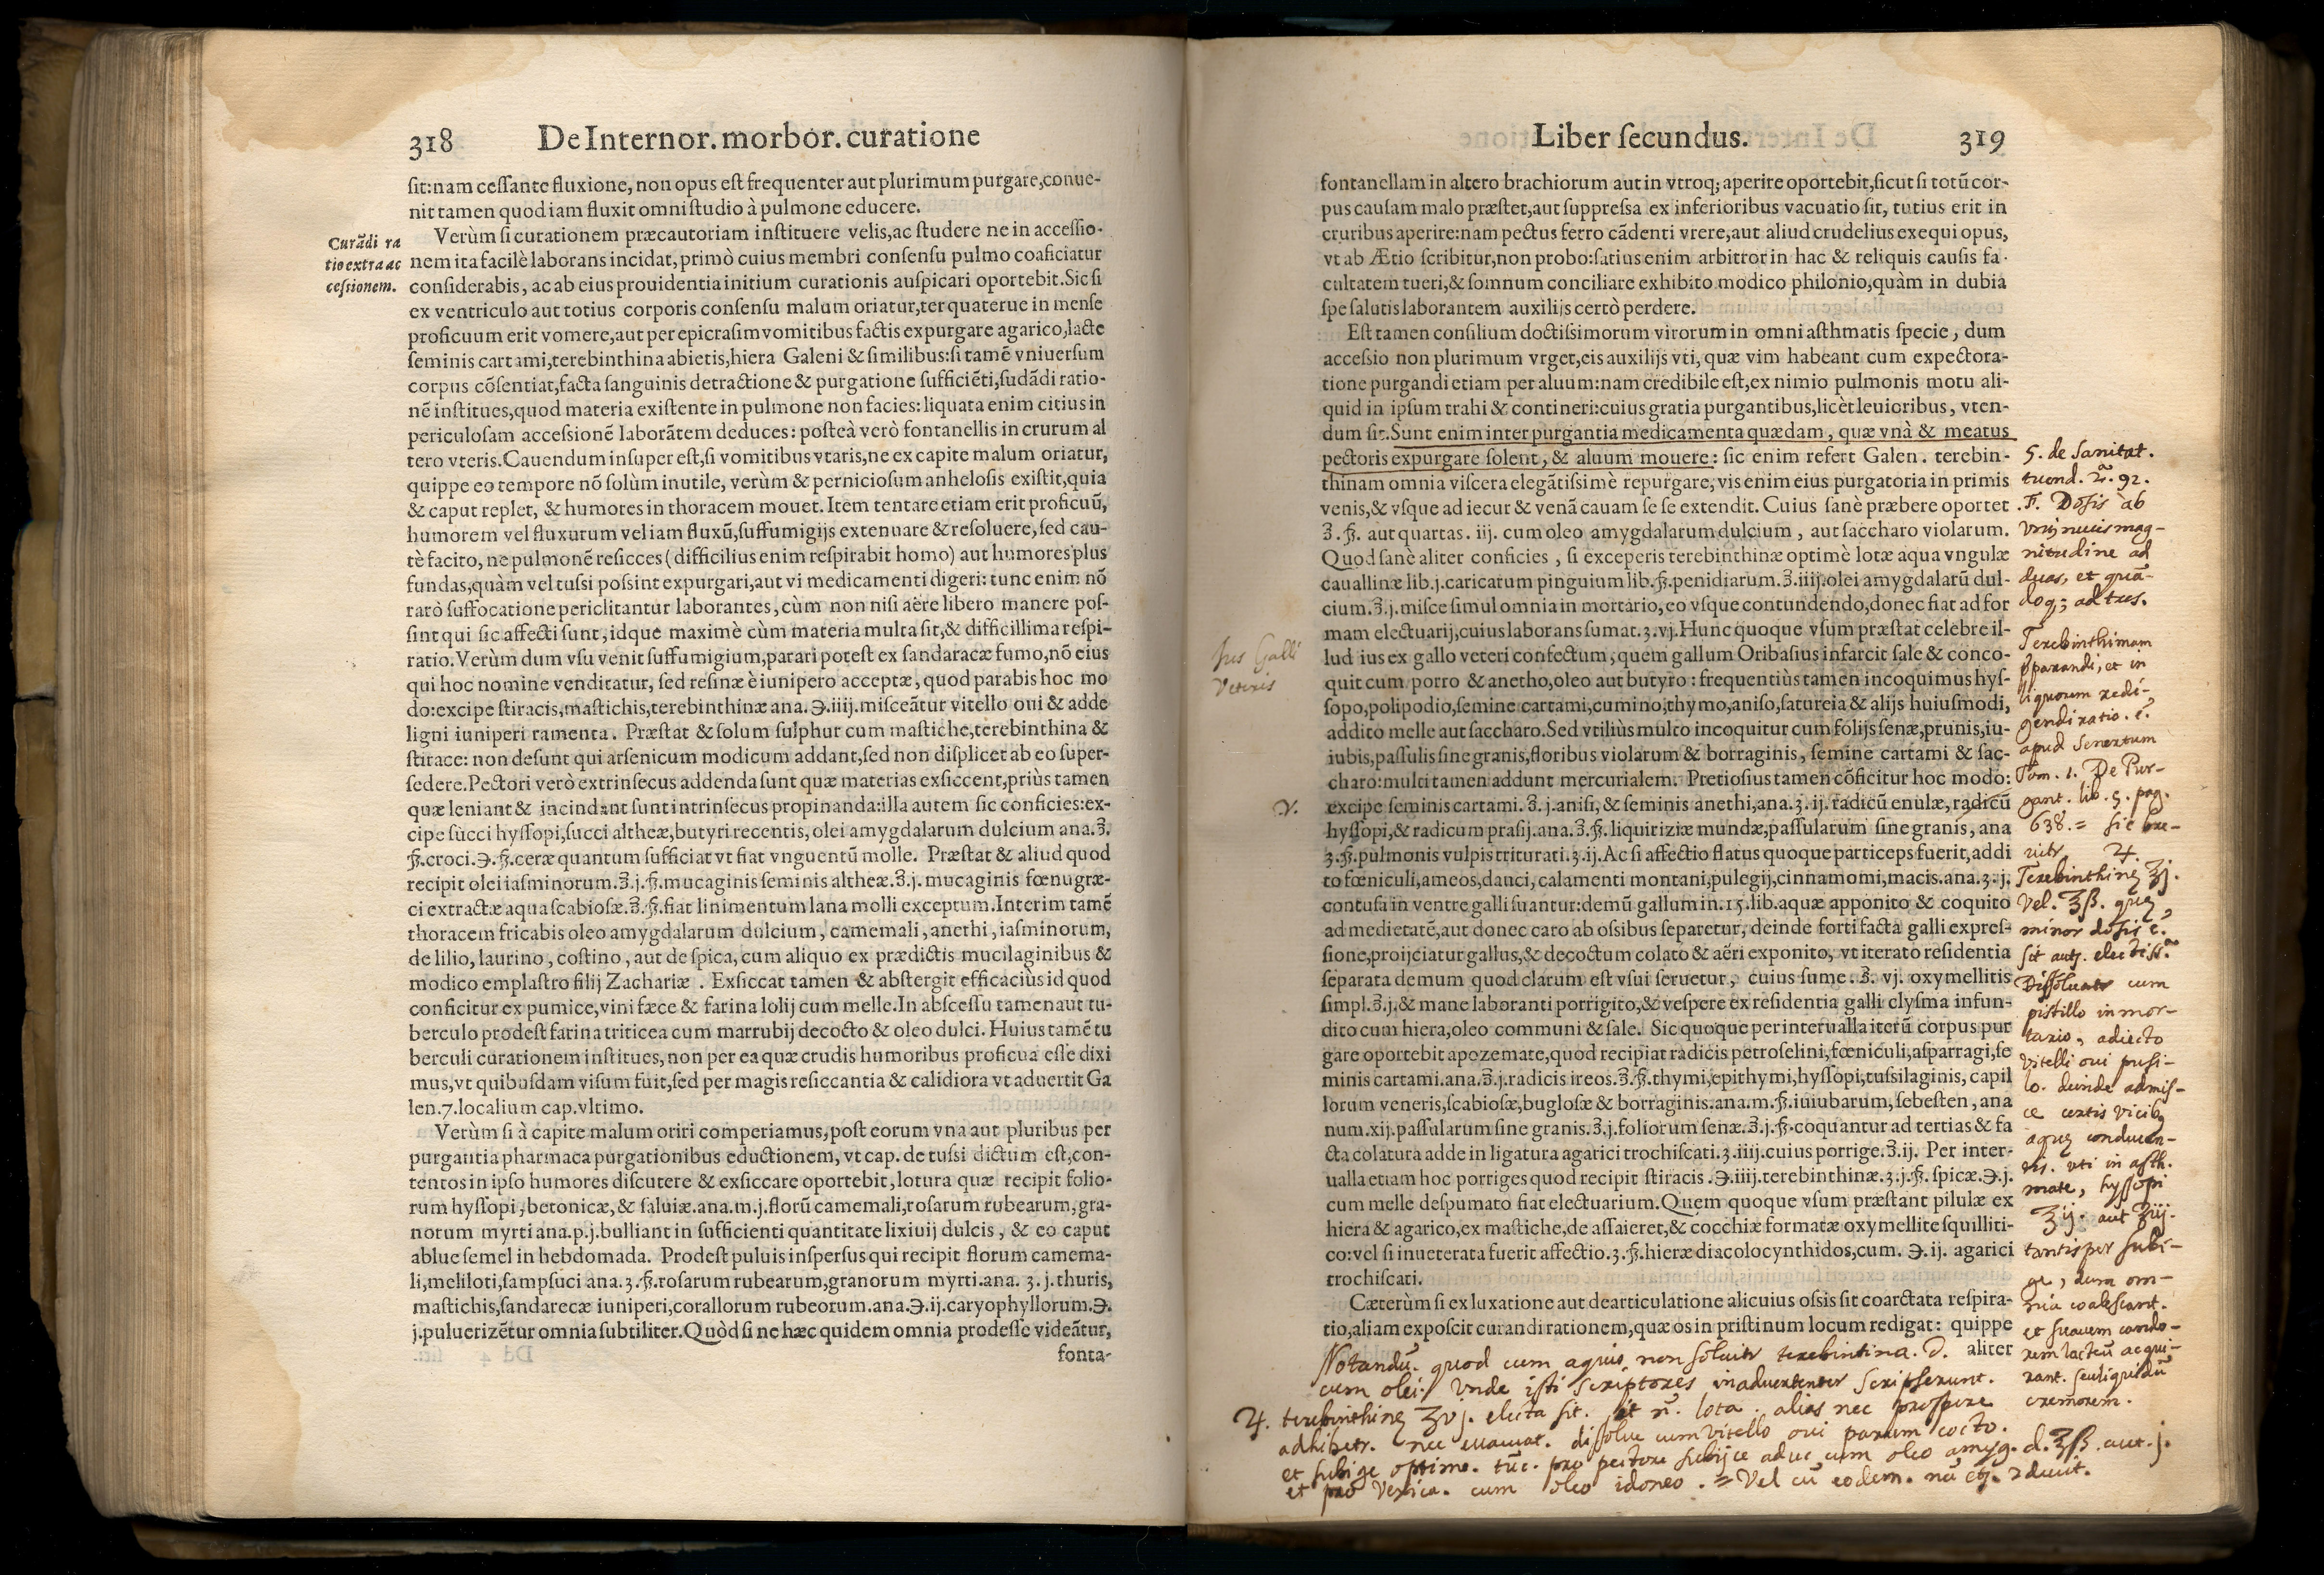 318 De Internor. morbor. curatione
sit: nam cessante fluxione, non opus est frequenter aut plurimum purgare, conue-
nit tamen quod iam fluxit omni studio à pulmone educere.
Verùm si curationem præcautoriam instituere velis, ac studere ne in accessio-
Curãdi ra
tio extra ac
cessionem.
nem ita facilè laborans incidat, primò cuius membri consensu pulmo coaficiatur
considerabis, ac ab eius prouidentia initium curationis auspicari oportebit. Sic si
ex ventriculo aut totius corporis consensu malum oriatur, ter quaterue in mense
proficuum erit vomere, aut per epicrasim vomitibus factis expurgare agarico, lacte
seminis cartami, terebinthina abietis, hiera Galeni & similibus: si tamẽ vniuersum
corpus cõsentiat, facta sanguinis detractione & purgatione sufficiẽti, sudãdi ratio-
nẽ institues, quod materia existente in pulmone non facies: liquata enim citius in
periculosam accessionẽ laborãtem deduces: posteà verò fontanellis in crurum al
tero vteris. Cauendum insuper est, si vomitibus vtaris, ne ex capite malum oriatur,
quippe eo tempore nõ solùm inutile, verùm & perniciosum anhelosis existit, quia
& caput replet, & humores in thoracem mouet. Item tentare etiam erit proficuũ,
humorem vel fluxurum vel iam fluxũ, suffumigijs extenuare & resoluere, sed cau-
tè facito, ne pulmonẽ resicces (difficilius enim respirabit homo) aut humores plus
fundas, quàm vel tussi possint expurgari, aut vi medicamenti digeri: tunc enim nõ
rarò suffocatione periclitantur laborantes, cùm non nisi aëre libero manere pos-
sint qui sic affecti sunt, idque maximè cùm materia multa sit, & difficillima respi-
ratio. Verùm dum vsu venit suffumigium, parari potest ex sandaracæ fumo, nõ eius
qui hoc nomine venditatur, sed resinæ è iunipero acceptæ, quod parabis hoc mo
do: excipe stiracis, mastichis, terebinthinæ ana. ℈.iiij. misceãtur vitello oui & adde
ligni iuniperi ramenta. Præstat & solum sulphur cum mastiche, terebinthina &
stirace: non desunt qui arsenicum modicum addant, sed non displicet ab eo super-
sedere. Pectori verò extrinsecus addenda sunt quæ materias exsiccent, priùs tamen
quæ leniant & incindant sunt intrinsecus propinanda: illa autem sic conficies: ex-
cipe succi hyssopi, succi altheæ, butyri recentis, olei amygdalarum dulcium ana. ℥.
ß. croci. ℈. ß. ceræ quantum sufficiat vt fiat vnguentũ molle. Præstat & aliud quod
recipit olei iasminorum. ℥.j.ß. mucaginis seminis altheæ. ℥.j. mucaginis fœnugræ-
ci extractæ aqua scabiosæ. ℥.ß. fiat linimentum lana molli exceptum. Interim tamẽ
thoracem fricabis oleo amygdalarum dulcium, camemali, anethi, iasminorum,
de lilio, laurino, costino, aut de spica, cum aliquo ex prædictis mucilaginibus &
modico emplastro filij Zachariæ. Exsiccat tamen & abstergit efficaciùs id quod
conficitur ex pumice, vini fæce & farina lolij cum melle. In abscessu tamen aut tu-
berculo prodest farina triticea cum marrubij decocto & oleo dulci. Huius tamẽ tu
berculi curationem institues, non per ea quæ crudis humoribus proficua esse dixi
mus, vt quibusdam visum fuit, sed per magis resiccantia & calidiora vt aduertit Ga
len. 7. localium cap. vltimo.
Verùm si à capite malum oriri comperiamus, post eorum vna aut pluribus per
purgantia pharmaca purgationibus eductionem, vt cap. de tussi dictum est, con-
tentos in ipso humores discutere & exsiccare oportebit, lotura quæ recipit folio-
rum hyssopi, betonicæ, & saluiæ. ana. m.j. florũ camemali, rosarum rubearum, gra-
norum myrti ana. p.j. bulliant in sufficienti quantitate lixiuij dulcis, & eo caput
ablue semel in hebdomada. Prodest puluis inspersus qui recipit florum camema-
li, meliloti, sampsuci ana. ʒ.ß. rosarum rubearum, granorum myrti. ana. ʒ.j. thuris,
mastichis, sandarecæ iuniperi, corallorum rubeorum. ana. ℈.ij. caryophyllorum. ℈.
j. puluerizẽtur omnia subtiliter. Quòd si ne hæc quidem omnia prodesse videãtur,
fonta-
Liber secundus. 319
fontanellam in altero brachiorum aut in vtroq; aperire oportebit, sicut si totũ cor-
pus causam malo præstet, aut suppressa ex inferioribus vacuatio sit, tutius erit in
cruribus aperire: nam pectus ferro cãdenti vrere, aut aliud crudelius exequi opus,
vt ab Ætio scribitur, non probo: satius enim arbitror in hac & reliquis causis fa-
cultatem tueri, & somnum conciliare exhibito modico philonio, quàm in dubia
spe salutis laborantem auxilijs certò perdere.
Est tamen consilium doctissimorum virorum in omni asthmatis specie, dum
accessio non plurimum vrget, eis auxilijs vti, quæ vim habeant cum expectora-
tione purgandi etiam per aluum: nam credibile est, ex nimio pulmonis motu ali-
quid in ipsum trahi & contineri: cuius gratia purgantibus, licèt leuioribus, vten-
dum sit. Sunt enim inter purgantia medicamenta quædam, quæ vnà & meatus
pectoris expurgare solent, & aluum mouere: sic enim refert Galen. terebin-
thinam omnia viscera elegãtissimè repurgare, vis enim eius purgatoria in primis
venis, & vsque ad iecur & venã cauam se se extendit. Cuius sanè præbere oportet
℥.ß. aut quartas. iij. cum oleo amygdalarum dulcium, aut saccharo violarum.
Quod sanè aliter conficies, si exceperis terebinthinæ optimè lotæ aqua vngulæ
cauallinæ lib.j. caricarum pinguium lib.ß. penidiarum. ℥.iiij. olei amygdalarũ dul-
cium. ℥.j. misce simul omnia in mortario, eo vsque contundendo, donec fiat ad for
mam electuarij, cuius laborans sumat. ʒ.vj. Hunc quoque vsum præstat celebre il-
lud ius ex gallo veteri confectum, quem gallum Oribasius infarcit sale & conco-
quit cum porro & anetho, oleo aut butyro: frequentiùs tamen incoquimus hys-
sopo, polipodio, semine cartami, cumino, thymo, aniso, satureia & alijs huiusmodi,
addito melle aut saccharo. Sed vtiliùs multo incoquitur cum folijs senæ, prunis, iu-
iubis, passulis sine granis, floribus violarum & borraginis, semine cartami & sac-
charo: multi tamen addunt mercurialem. Pretiosius tamen cõficitur hoc modo:
excipe seminis cartami. ℥.j. anisi, & seminis anethi, ana. ʒ.ij. radicũ enulæ, radicũ
hyssopi, & radicum prasij. ana. ℥.ß. liquiriziæ mundæ, passularum sine granis, ana
ʒ.ß. pulmonis vulpis triturati. ʒ.ij. Ac si affectio flatus quoque particeps fuerit, addi
to fœniculi, ameos, dauci, calamenti montani, pulegij, cinnamomi, macis. ana. ʒ.j.
contusa in ventre galli suantur: demũ gallum in. 15. lib. aquæ apponito & coquito
ad medietatẽ, aut donec caro ab ossibus separetur, deinde forti facta galli expres-
sione, proijciatur gallus, & decoctum colato & aëri exponito, vt iterato residentia
separata demum quod clarum est vsui seruetur, cuius sume. ℥. vj. oxymellitis
simpl. ℥.j. & mane laboranti porrigito, & vespere ex residentia galli clysma infun-
dito cum hiera, oleo communi & sale. Sic quoque per interualla iterũ corpus pur
gare oportebit apozemate, quod recipiat radicis petroselini, fœniculi, asparragi, se
minis cartami. ana. ℥.j. radicis ireos. ℥.ß. thymi, epithymi, hyssopi, tussilaginis, capil
lorum veneris, scabiosæ, buglosæ & borraginis. ana. m.ß. iuiubarum, sebesten, ana
num. xij. passularum sine granis. ℥.j. foliorum senæ. ℥.j.ß. coquantur ad tertias & fa
cta colatura adde in ligatura agarici trochiscati. ʒ.iiij. cuius porrige. ℥.ij. Per inter-
ualla etiam hoc porriges quod recipit stiracis. ℈.iiij. terebinthinæ. ʒ.j.ß. spicæ. ℈.j.
cum melle despumato fiat electuarium. Quem quoque vsum præstant pilulæ ex
hiera & agarico, ex mastiche, de assaieret, & cocchiæ formatæ oxymellite squilliti-
co: vel si inueterata fuerit affectio. ʒ.ß. hieræ diacolocynthidos, cum. ℈.ij. agarici
trochiscati.
Cæterùm si ex luxatione aut dearticulatione alicuius ossis sit coarctata respira-
tio, aliam exposcit curandi rationem, quæ os in pristinum locum redigat: quippe
aliter
Jus Galli
Veteris
5. de Sanitat.
tuend. 92.
Dosis ab
vnius nucis mag-
nitudine ad
duas, et quã-
doq; ad tres.
Terebinthinam
p̃parandi, et in
liquorem redi-
gendi ratio. ẽ.
apud Senertum
Tom. 1. De Pur-
gant. lib. 5. pag.
638. = sic bre-
uitr ♃.
Terebinthinę ʒj.
Vel. ʒß. quę
minor dosis ẽ.
sit autẽ. electiss.
Dissoluatr cum
pistillo in mor-
tario, adiecto
vitelli oui pusi-
lo. deinde admis-
ce certis vicibꝫ
aquę conducen-
tis. vti in asth-
mate, hyssopi
℥ij. aut ℥iij.
tantisper subi-
ge, dum om-
nia coalescant.
et suauem cando-
rem lacteũ acqui-
rant. seu liquidũ
cremorem.
Notandũ. quod cum aquis non soluitr terebintina. D.
cum olei. Vnde isti scriptores inaduertenter scripserunt.
♃. terebinthinę ʒvj. electa sit. sit ñ. lota. alias nec prospere
adhibetr. nec euacuat. dissolue cum vitello oui parum cocto.
et subige optime. tũc. pro pectore subijce aduc cum oleo amyg. d. ℥ß. aut. j.
et pro Vexica. cum oleo idoneo. = Vel cũ eodem.